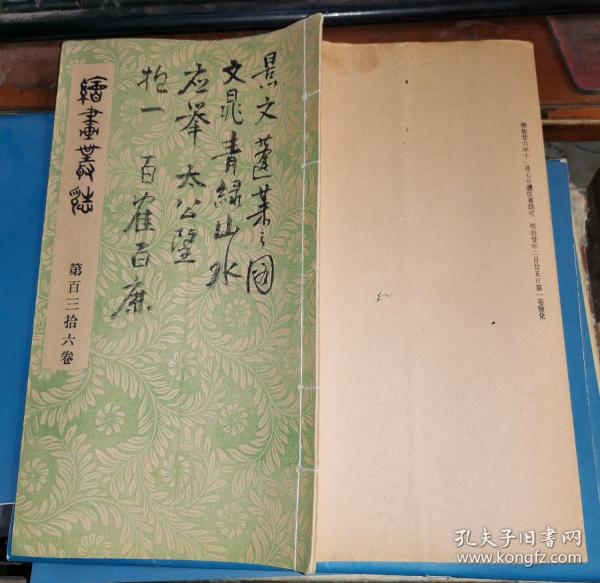 景文 蓬莱之図
文晁 青緑山水
応挙 太公望
抱一 百隺百鹿
繪畫叢誌
第百三拾六卷
明治廿六年十一月七日遞信省認可、明治廿年二月廿五日第一卷發兌
孔夫子旧书网
www.kongfz.com